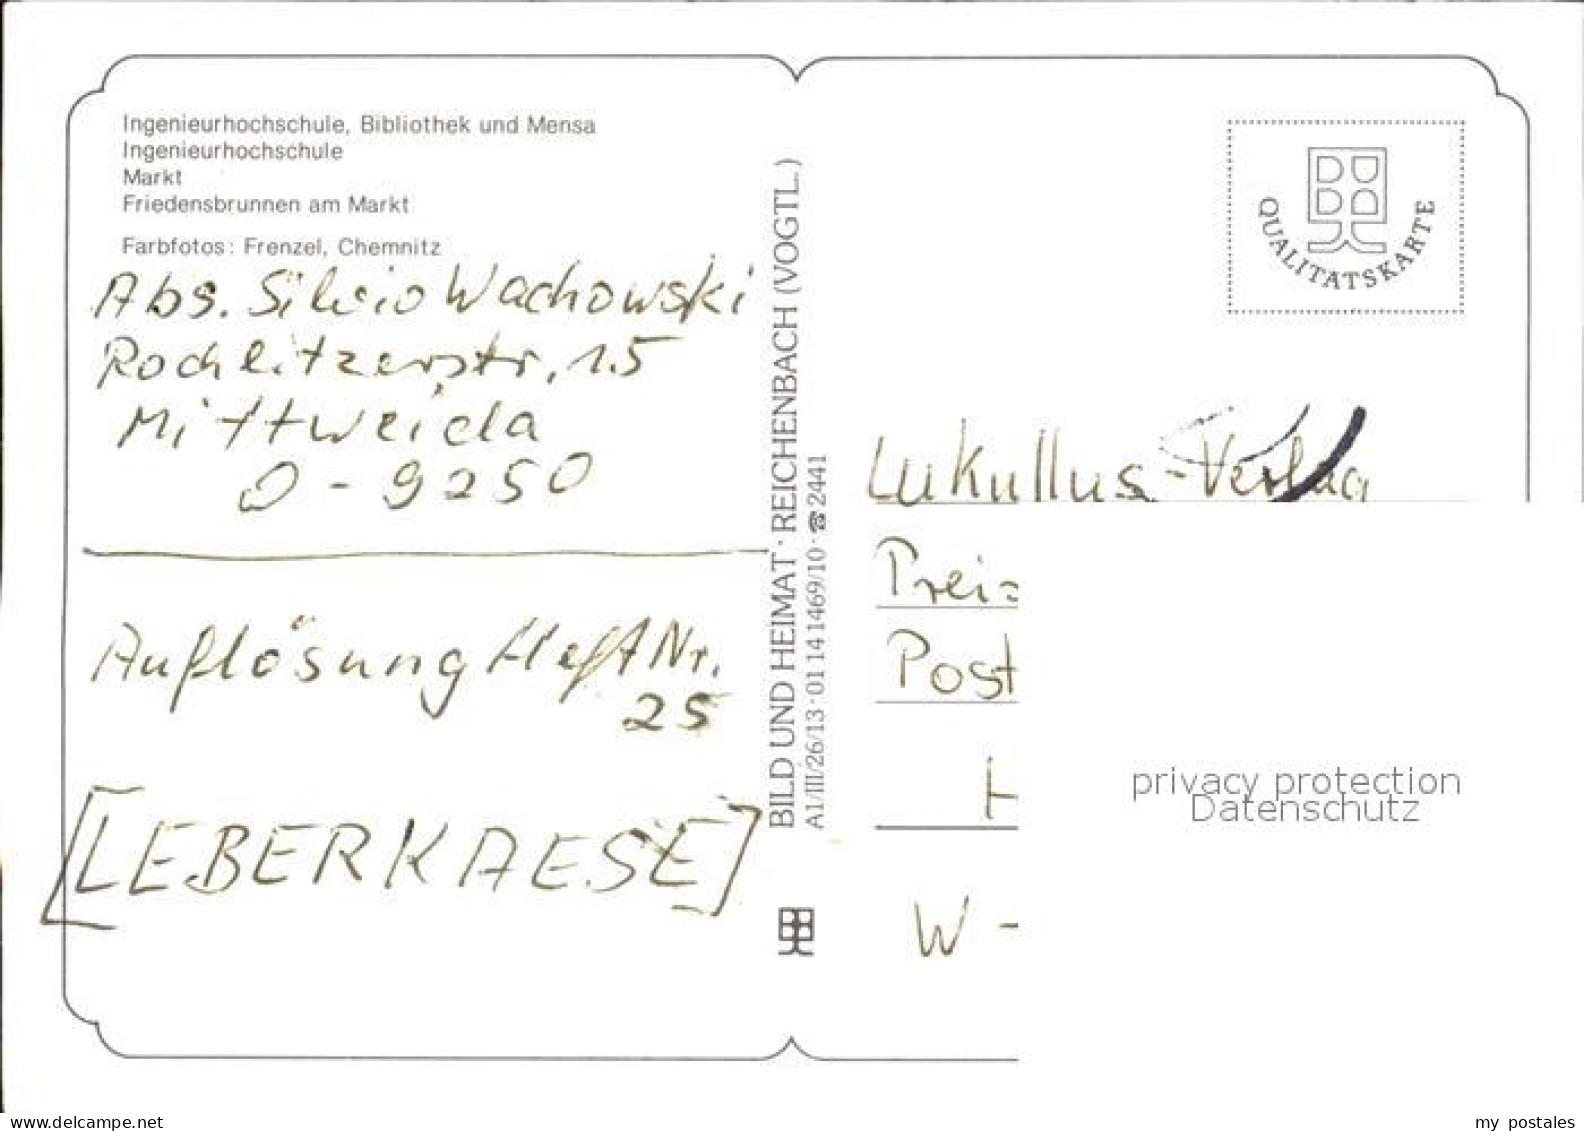 Ingenieurhochschule, Bibliothek und Mensa
Ingenieurhochschule
Markt
Friedensbrunnen am Markt
Farbfotos: Frenzel, Chemnitz
Abs. Silvio Wachowski
Rochlitzerstr. 15
Mittweida
O - 9250
Auflösung Heft Nr.
25
[LEBERKAESE]
BILD UND HEIMAT · REICHENBACH (VOGTL.)
A1/III/26/13 · 01 14 1469/10 · ☎ 2441
QUALITÄTSKARTE
Lukullus-Verlag
Prei
Post
H
W -
privacy protection
Datenschutz
www.delcampe.net
my postales